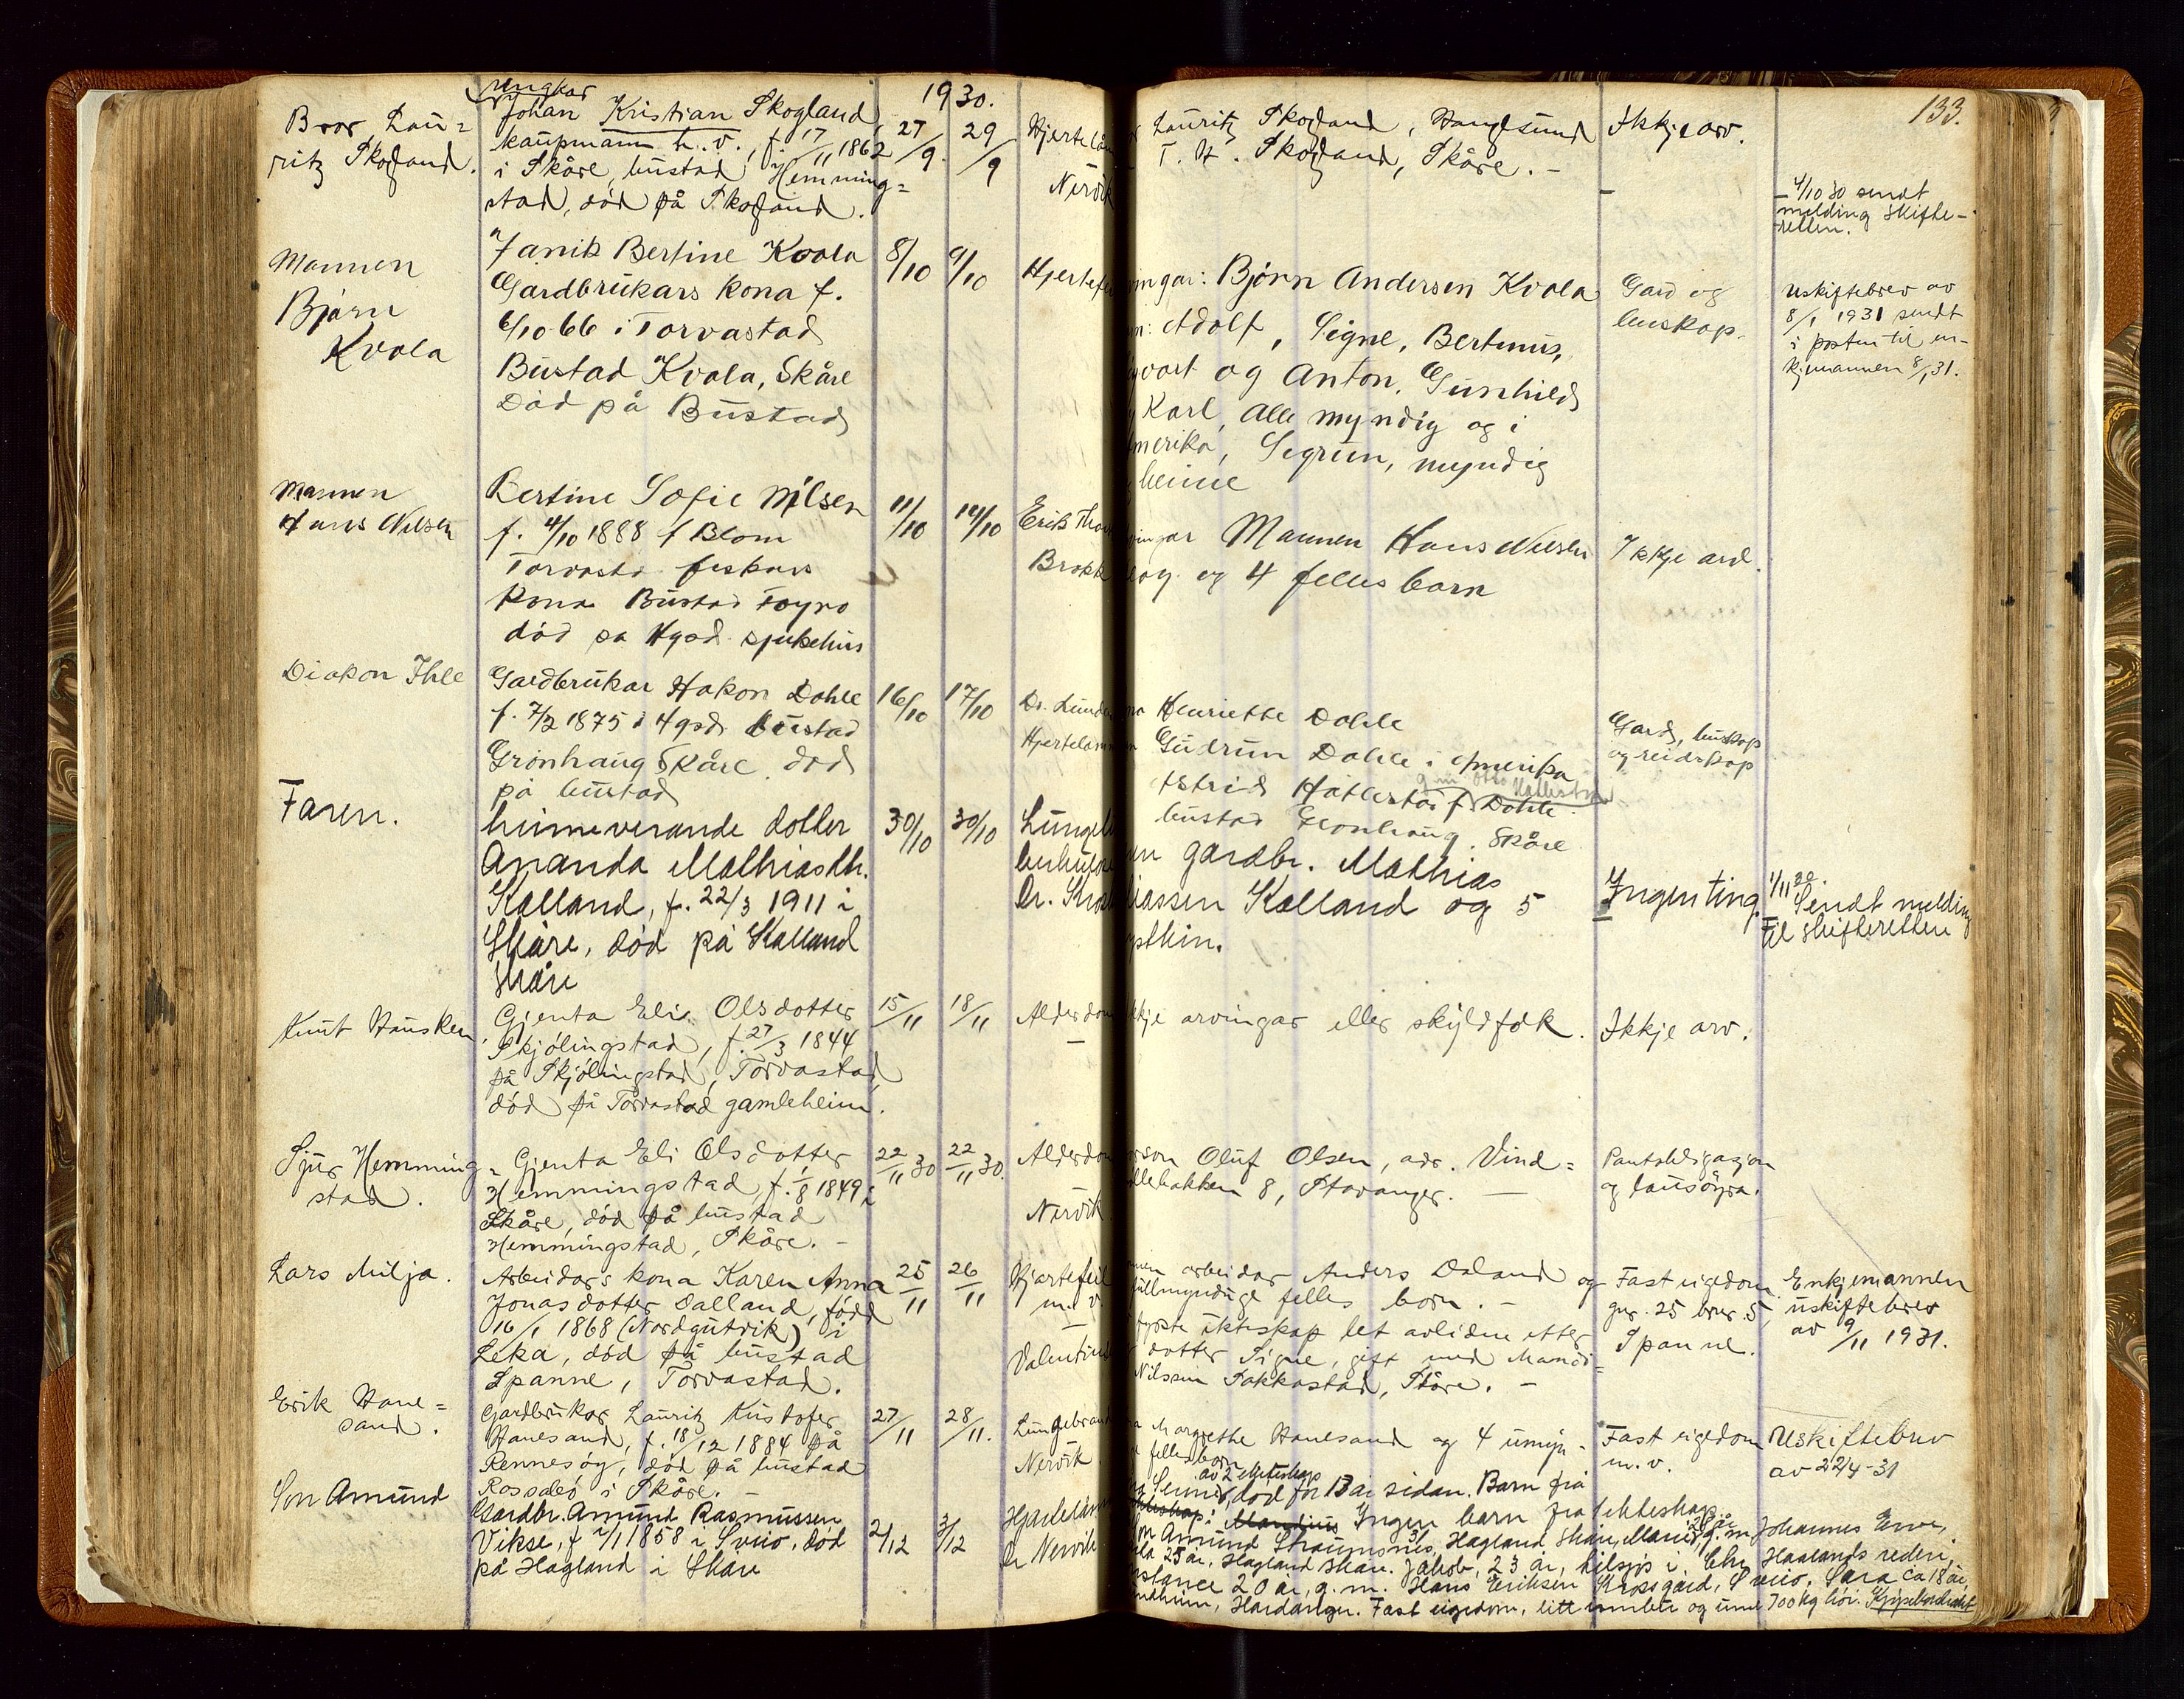 1930.
133.
Bror, Lau=
ritz Skogland.
Ungkar
Johan Kristian Skogland,
kaupmann h. v., f. 17/11 1862
i Skåre, bustad Hemming=
stad, död på Skogland.
27/9.
29/9
Nervik
Lauritz Skogland, Haugesund
T. H. Skogland, Skåre. –
Ikkje arv.
– 4/10 30 sendt
melding skifte-
retten.
Mannen
Björn
Kvala
Janik Bertine Kvala
Gardbrukars kona f.
6/10 66 i Torvastad
Bustad Kvala, Skåre
Död på Bustad
8/10
9/10
Björn Andersen Kvala
Adolf, Signe, Bertinus,
og Anton, Gunhild
Karl, alle myndig og i
Amerika, Sigrun, myndig
heime
Gard og
buskap.
Uskiftebrev av
8/1 1931 sendt
i posten til en-
kjemannen 8/1 31.
Mannen
Hans Nilsen
Bertine Sofie Nilsen
f. 4/10 1888 f Blom
Torvastd fiskars
kona Bustad
död på Hgsd sjukehus
11/10
14/10
Erik
Mannen Hans Nilsen
og 4 felles barn
Ikkje arv.
Diakon Ihle
Gardbrukar Hakon Dahle
f. 7/2 1875 i Hgsd. bustad
Grönhaug Skåre död
på bustad
16/10
17/10
Henriette Dahle
Gudrun Dahle i Amerika
Astrid f. Dahle
bustad Grönhaug, Skåre
Gard, buskap
og reidskap
Faren.
heimeverande dotter
Ananda Mathiasdtr.
Kalland, f. 22/3 1911 i
Skåre, död på Kalland
Skåre
30/10
30/10
gardbr. Mathias
Kalland og 5
Ingenting.
1/11 30.
Sendt melding
til skifteretten
Knut Hausken
Gjenta Eli Olsdotter
Skjölingstad, f. 27/3 1844
på Skjölingstad, Torvastad,
död på Torvastad gamleheim.
15/11
18/11
Alderdom
Ikkje arvingar eller skyldfolk.
Ikkje arv.
Sjur Hemming=
stad.
Gjenta Eli Olsdotter
Hemmingstad, f. 1/8 1849 i
Skåre, död på bustad
Hemmingstad, Skåre. –
22/11 30
22/11 30.
Alderdom
Nervik
Oluf Olsen, adr. Vind=
möllebakken 8, Stavanger. –
Pantobligasjon
og lausöyra.
Lars Milja.
Arbeidars kona Karen Anna
Jonasdotter Dalland, född
16/1 1868 (Nordgutvik) i
Leka, död på bustad
Spanne, Torvastad.
25/11
26/11
Hjartefeil
m. v.
arbeidar Anders Daland og
fullmyndige felles born. –
fyrste ekteskap let avlidne etter
dotter Signe, gift med
Nilssen Sakkastad, Skåre. –
Fast eigedom
gnr. 25 bnr. 5,
Spanne.
Enkjemannen
uskiftebrev
av 9/11 1931.
Erik Hane=
sand.
Gardbrukar Lauritz Kristofer
Hanesand, f. 18/12 1884 på
Rennesöy, död på bustad
Rossabö i Skåre. –
27/11
28/11.
Nervik
Margrethe Hanesand og 4 umyn-
felles born
Fast eigedom
m. v.
Uskiftebrev
av 22/4-31
Son Amund
Gardbr. Amund Rasmussen
Vikse, f 7/1 1858 i Sveio, död
på Hagland i Skåre
2/12
3/12
Dr Nervik
av 2 ekteskap
död for 13 år sidan. Barn frå
Ingen barn fra 1 ekteskap.
Amund 31, Hagland, Skåre, g. m. Johannes
25 år, Hagland Skåre. Jakob, 23 år, tilsjös i Chr. Haalands rederi,
20 år, g. m. Hans Eriksen Krossgard, Sveio. Sara ca 18 år,
Hardanger. Fast eigedom, litt innbu og uml 700 kg höi.